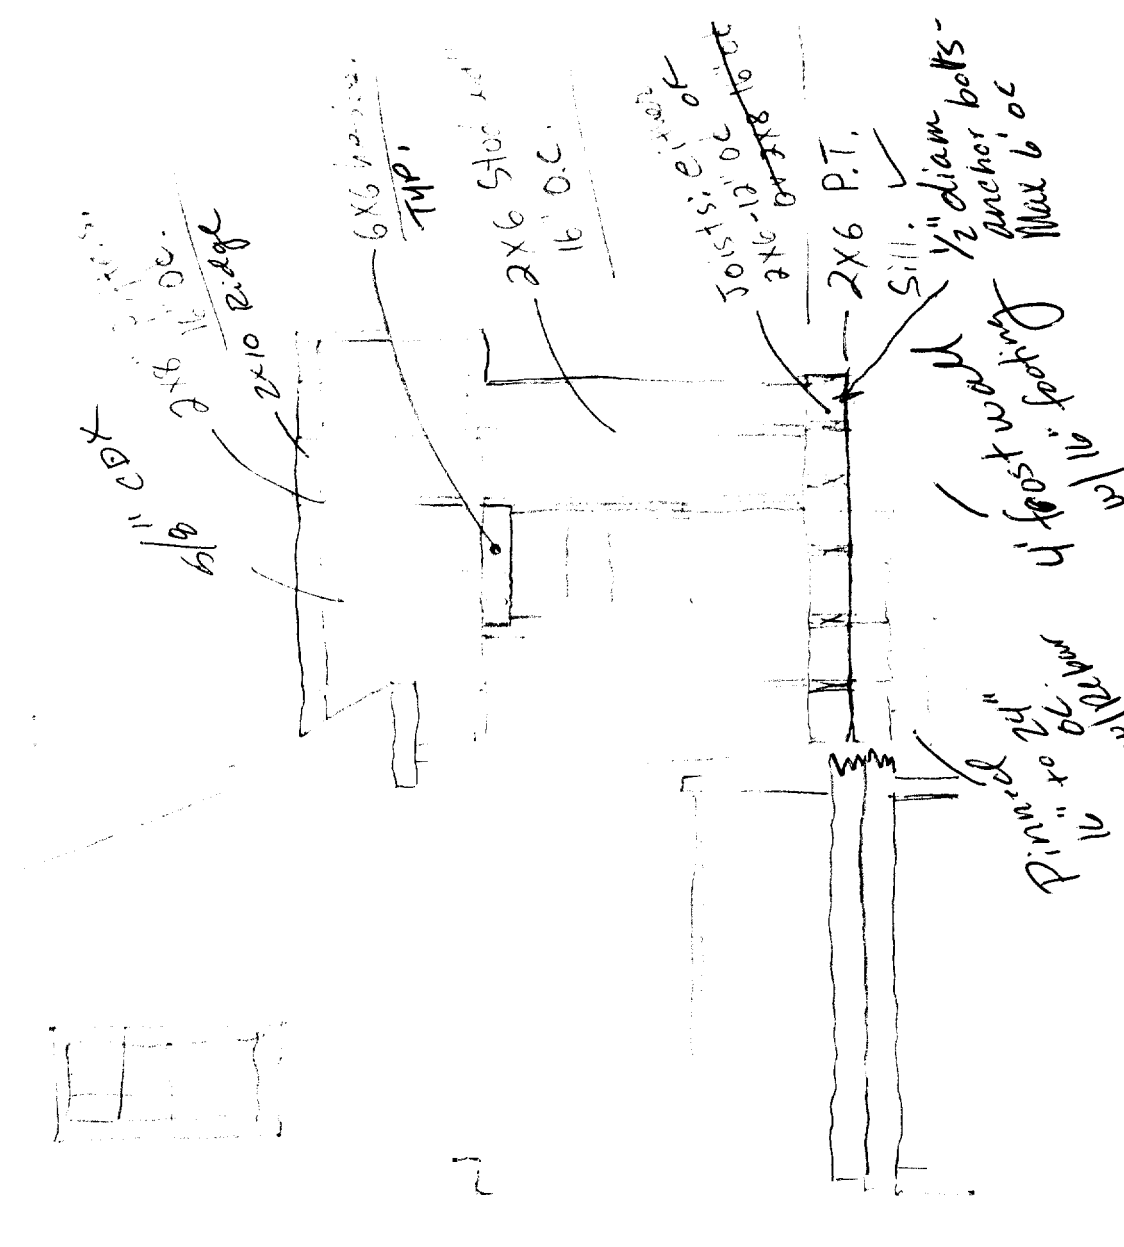 5/8" CDX
2x8
16" OC.
2x10 Ridge
6x6
TYP.
2x6 Stud
16" O.C.
Joists: either
2x6-12" OC or
or 2x8 16" oc
2x6 P.T.
Sill.
1/2" diam
anchor bolts-
Max 6' oc
4' frost wall
w/ 16" footing
Pinned
16" to 24"
OC.
w/ Rebar